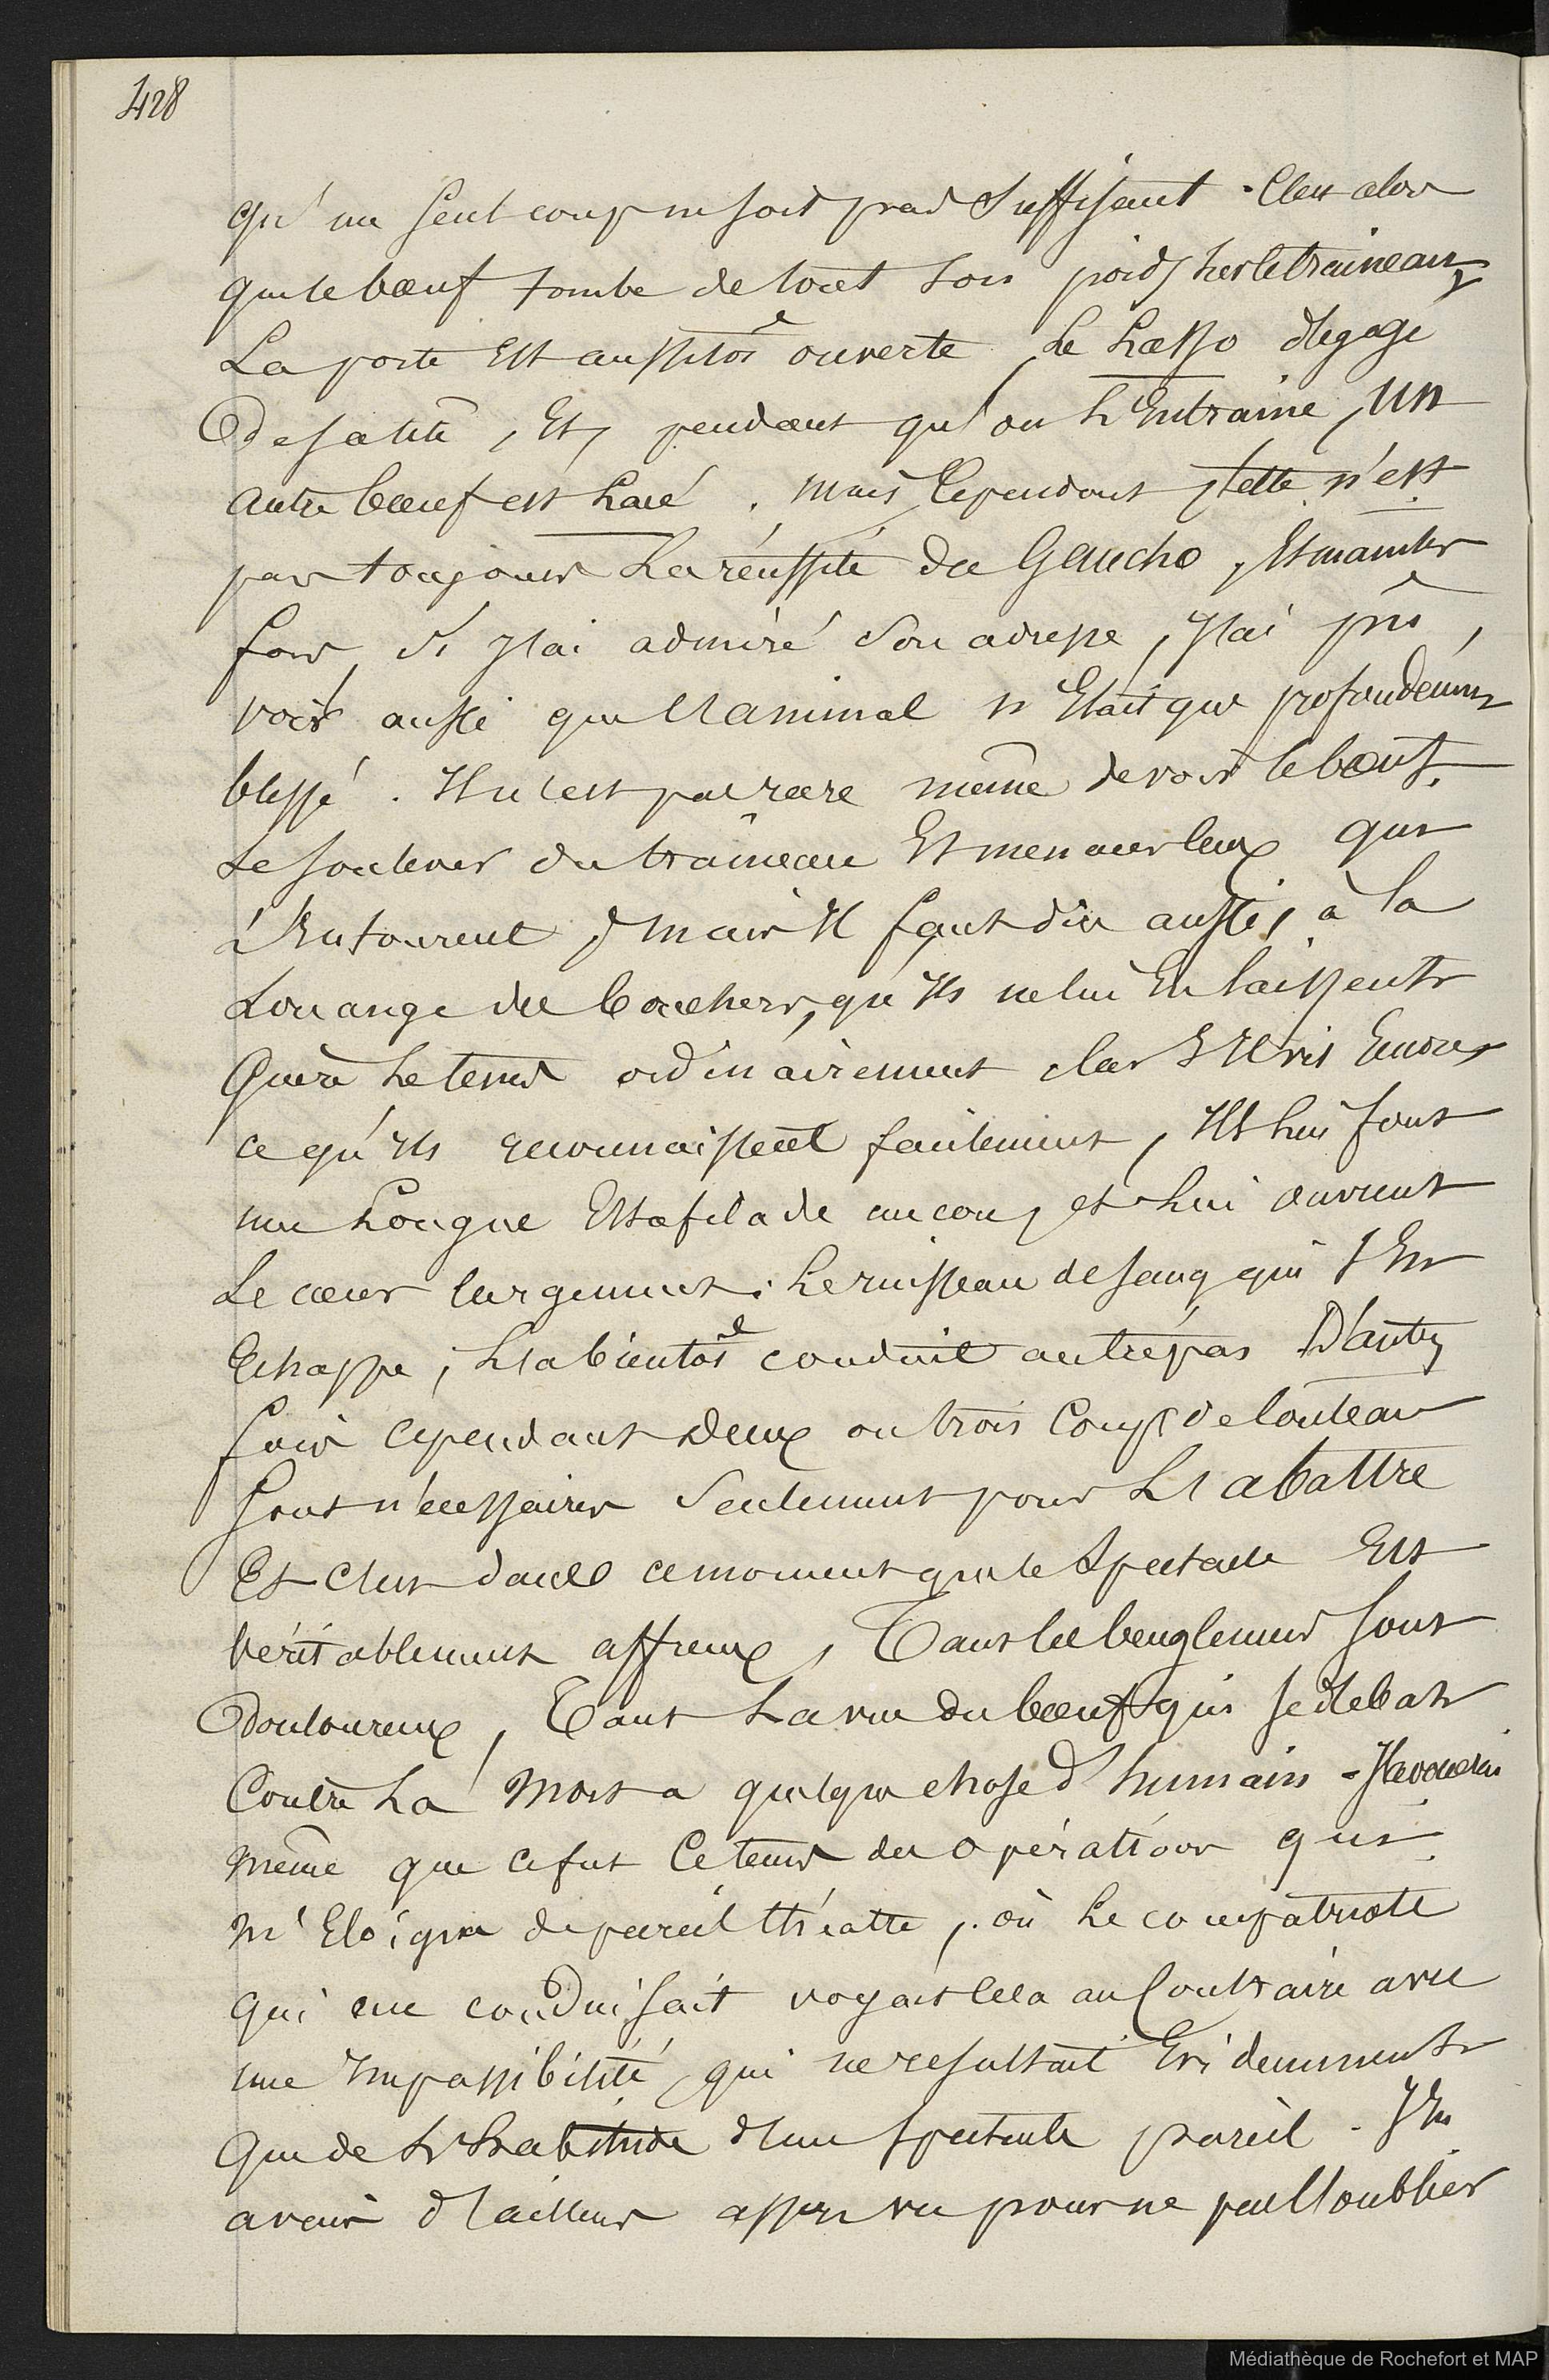 428
qu'un seul coup ne soit pas suffisant. C'est alors
que le bœuf tombe de tout son poids sur le traineau,
La porte Est aussitôt ouverte, Le Lasso dégagé
de sa tête, Et, pendant qu'on L'Entraine, un
autre bœuf est Lacé. mais Cependant, telle n'est
pas toujours La réussite du Gaucho, Et maintes
fois, si J'ai admiré Son adresse, J'ai pû,
voir aussi que l'animal n'Etait que profondément
blessé. Il n'est pas rare même de voir le bœuf
se soulever du traineau Et menacer ceux qui
L'Entourent, mais Il faut dire aussi, à la
Louange des bouchers, qu'Ils ne lui En laissent
Guère Le tems ordinairement car S'Il vit Encore
ce qu'Ils reconnaissent facilement, Ils Lui font
une Longue Estafilade au cou, et Lui ouvrent
Le cœur largement; Le ruisseau de sang qui s'En
Echappe, L'a bientôt conduit au trépas D'autres
fois cependant deux ou trois Coups de Couteau
Sont nécessaires Seulement pour L'abattre
Et c'est dans ce moment que le Spectacle Est
véritablement affreux, Tant les beuglemens sont
douloureux, Tant La vue du bœuf qui se débat
Contre La Mort a quelque chose d'humain - J'avouerai
même que ce fut Ce tems des opérations qui
m'Eloigna de pareil théatre, où Le compatriote
qui me conduisait voyait Cela au Contraire avec
une Impassibilité, qui ne resultait Evidemment
Que de L'habitude d'un spectacle pareil. J'En
avais d'ailleurs assez vu pour ne pas l'oublier
Médiathèque de Rochefort et MAP